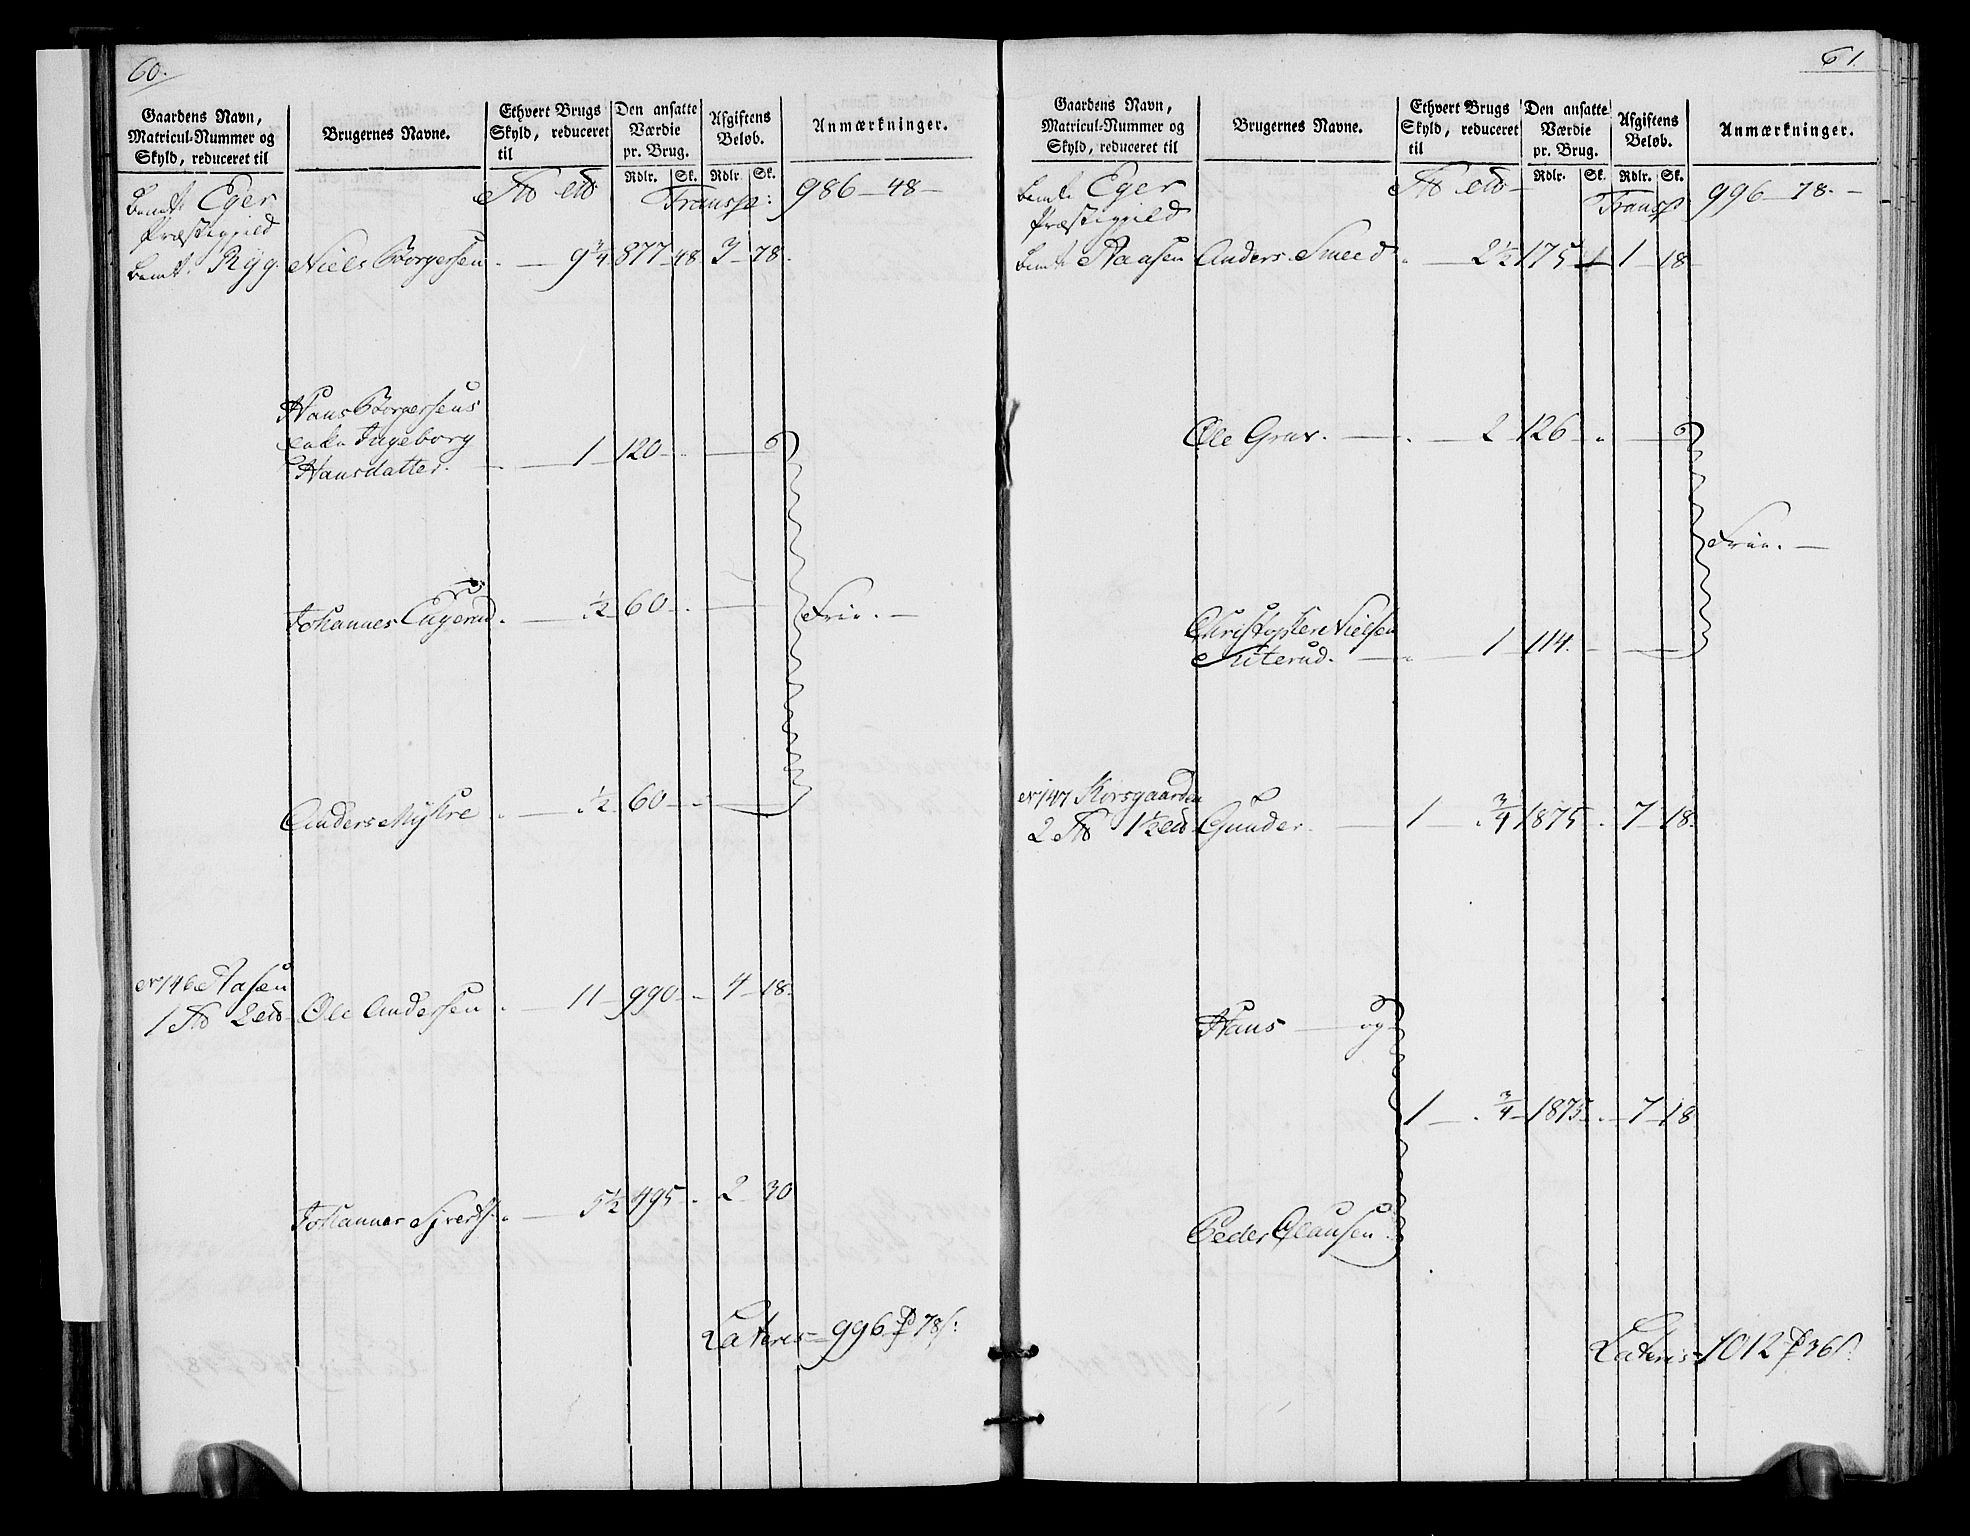 60.
Gaardens Navn,
Matricul-Nummer og
Skyld, reduceret til
Brugernes Navne.
Ethvert Brugs
Skyld, reduceret
til
Den ansatte
Værdie
pr. Brug.
Afgiftens
Beløb.
Anmærkninger.
Rdlr. Sk. Rdlr. Sk.
bemte Eger
Præstegield
Transp: 986 - 48 -
bemt. Ryg. Niels Borgersen . - 9 3/4 877 48 3 - 78.
Hans Borgersens
enke Ingeborg
Hansdatter. - 1 120 - .
Johannes Engerud. - . 1/2 60 - . Frie. -
Anders Myhre . - . 1/2 60 - .
No 146 Aasen
1 2 Ole Andersen . - 11 - 990 - . 4 - 18.
Johannes Siverts. . - 5 1/2 495 - . 2 - 30
Lateris - 996 78
61.
Gaardens Navn,
Matricul-Nummer og
Skyld, reduceret til
Brugernes Navne.
Ethvert Brugs
Skyld, reduceret
til
Den ansatte
Værdie
pr. Brug.
Afgiftens
Beløb.
Anmærkninger.
Rdlr. Sk. Rdlr. Sk.
bemte Eger
Præstegield
Transp 996 - 78. -
bemte Aasen Anders Smed . - 2 1/2 175 1 - 18
Ole Grav. - . - 2 - 126 - .
Frie. -
Christopher Nielsen
Suterud. - . - 1 - 114. -
No 147 Korsgaarden
2 1 1/2 Gunder. - 1 - . 3/4 1875 - . 7 - 18.
Hans - og
1 - . 3/4 - 1875 - . 7 - 18
Peder Clausen.
Lateris - 1012 36